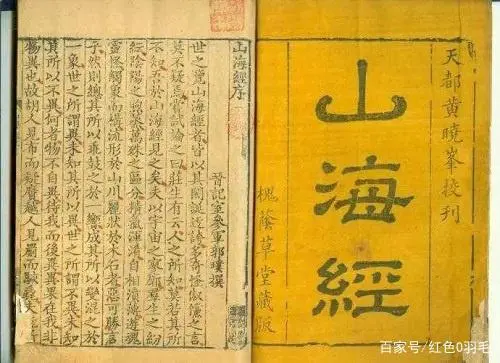 天都黄曉峯校刊
山海經
槐蔭草堂藏版
山海經序
晉記室參軍郭璞撰
世之覽山海經者皆以其閎誕迂誇多奇怪俶儻之言
莫不疑焉嘗試論之曰莊生有云人之所知莫若其所
不知吾於山海經見之矣夫以宇宙之寥廓群生之紛
紜陰陽之煦蒸萬殊之區分精氣渾淆自相濆薄遊魂
靈怪觸象而構流形於山川麗狀於木石者惡可勝言
乎然則總其所以乖鼓之於一響成其所以變混之於
一象世之所謂異未知其所以異世之所謂不異未知
其所以不異何者物不自異待我而後異異果在我非
物異也故胡人見布而疑黂越人見罽而駭毳夫
百家号/红色0羽毛